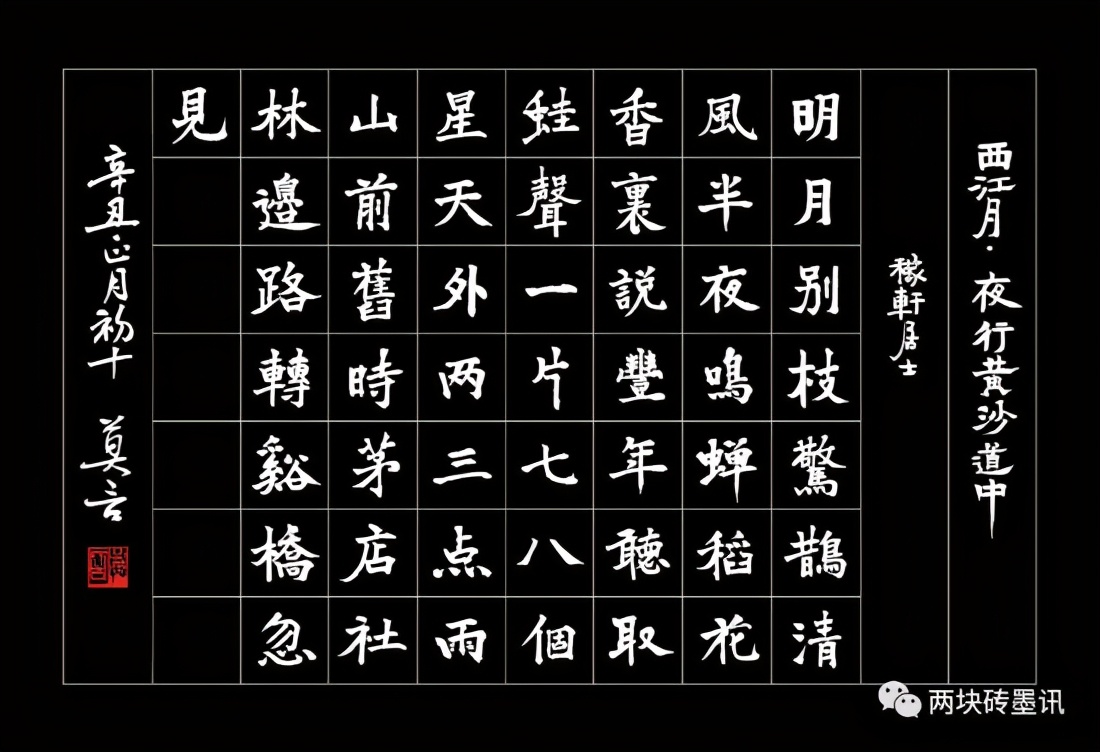 西江月·夜行黄沙道中
稼軒居士
明月别枝驚鵲清
風半夜鳴蝉稻花
香裏説豐年聽取
蛙聲一片七八個
星天外两三点雨
山前舊時茅店社
林邊路轉谿橋忽
見
辛丑·正月初十 莫言
两块砖墨讯